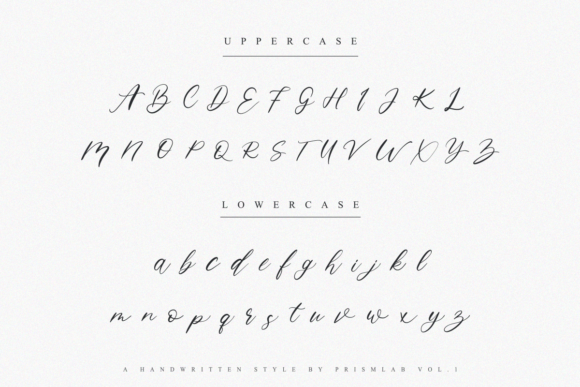 UPPERCASE
A B C D E F G H I J K L
M N O P Q R S T U V W X Y Z
LOWERCASE
a b c d e f g h i j k l
m n o p q r s t u v w x y z
A HANDWRITTEN STYLE BY PRISMLAB VOL.1